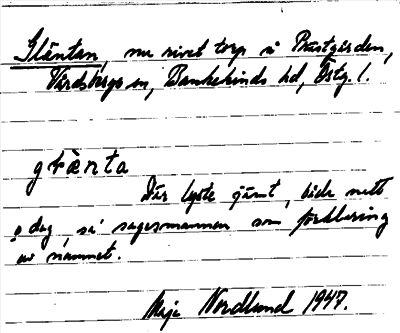 Gläntan, nu rivet torp å Prästgården,
Vårdsbergs sn, Bankekinds hd, Östg. l.
glænta
Där lyste jämt, både natt
o dag, sa' sagesmannen som förklaring
av namnet.
Maja Nordlund 1947.